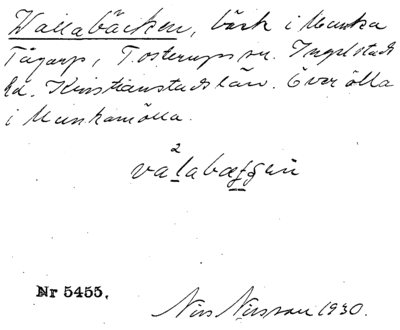 Wallabäcken, bäck i Munka
Tågarp, Tosterups sn. Ingelstads
hd. Kristianstads län. Överölla
i Munkamölla.
2
valabæggen
Nr 5455.
Nils Nilsson 1930.